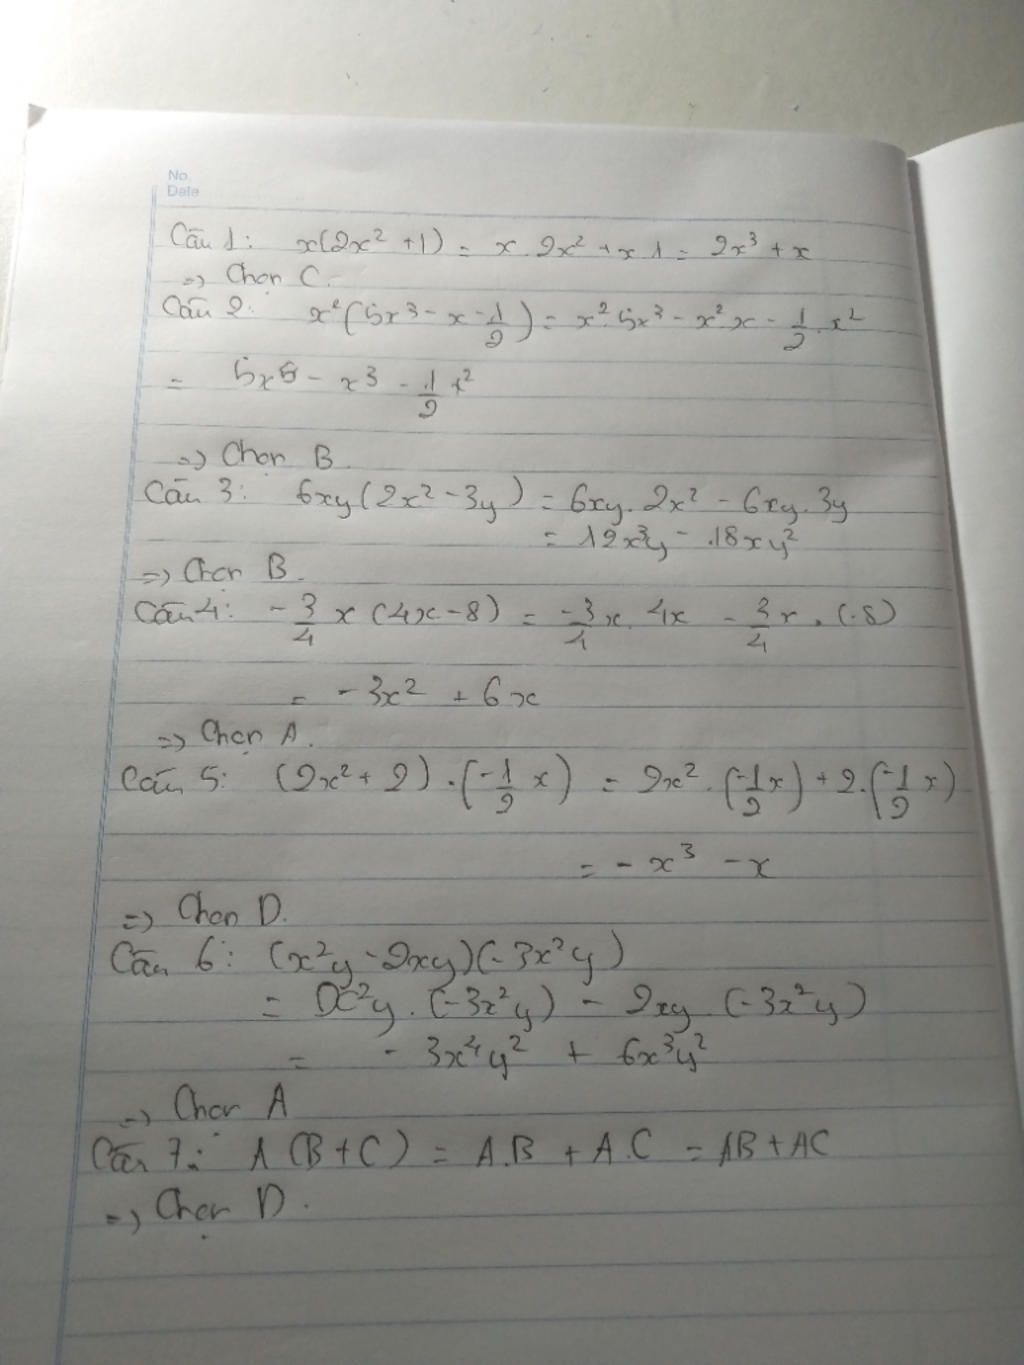 No.
Date
Câu 1: x(2x² + 1) = x . 2x² + x . 1 = 2x³ + x
=> Chọn C.
Câu 2: x²(5x³ - x - 1/2) = x² . 5x³ - x² . x - 1/2 . x²
= 5x⁵ - x³ - 1/2 x²
=> Chọn B.
Câu 3: 6xy(2x² - 3y) = 6xy . 2x² - 6xy . 3y
= 12x³y - 18xy²
=> Chọn B.
Câu 4: -3/4 x (4x - 8) = -3/4 x . 4x - 3/4 x . (-8)
= -3x² + 6x
=> Chọn A.
Câu 5: (2x² + 2) . (-1/2 x) = 2x² . (-1/2 x) + 2 . (-1/2 x)
= -x³ - x
=> Chọn D.
Câu 6: (x²y - 2xy)(-3x²y)
= x²y . (-3x²y) - 2xy . (-3x²y)
= -3x⁴y² + 6x³y²
=> Chọn A
Câu 7: A (B + C) = A.B + A.C = AB + AC
=> Chọn D.